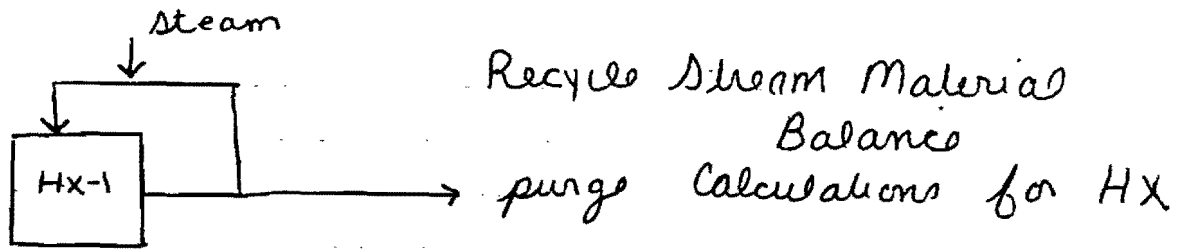 steam
Recycle Stream Material
Balance
Hx-1
purge Calculations for HX